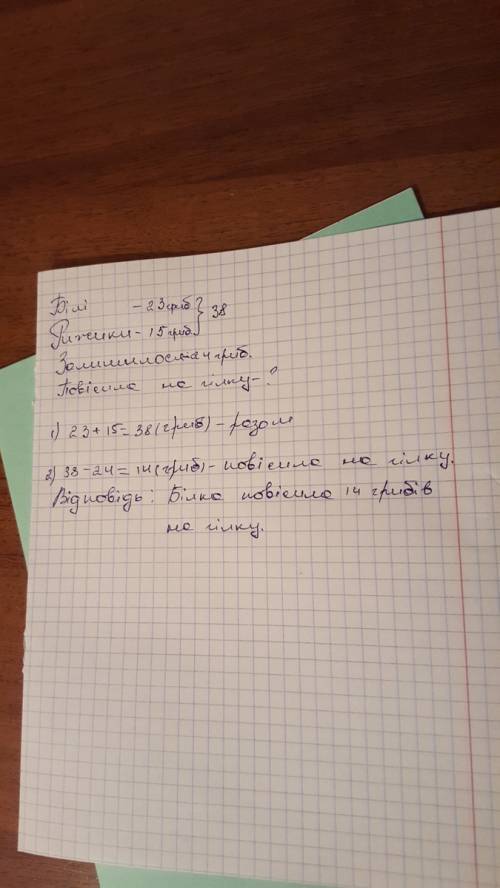 Білі - 23 гриб. } 38
Рижики - 15 гриб.
Залишилось - 24 гриб.
Повісила на гілку - ?
1) 23 + 15 = 38 (гриб) - разом
2) 38 - 24 = 14 (гриб) - повісила на гілку.
Відповідь: Білка повісила 14 грибів
на гілку.